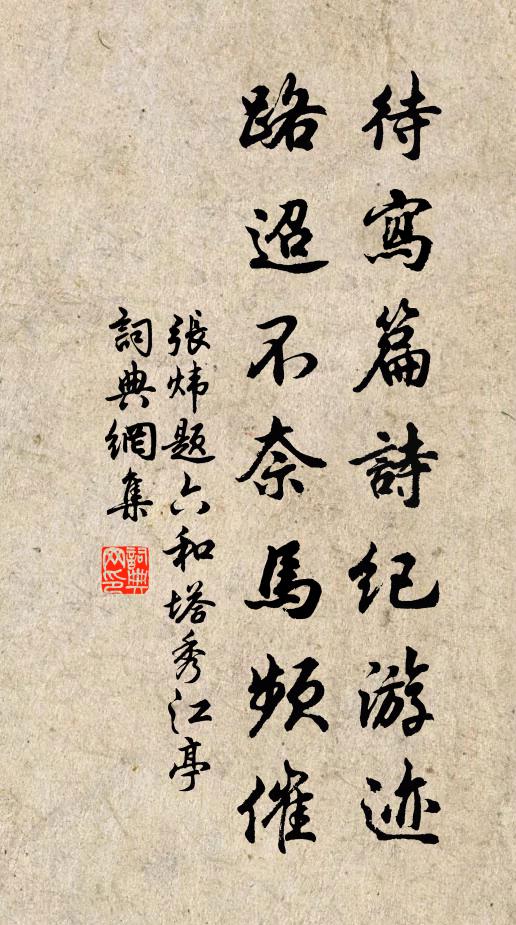 待寫篇詩紀游迹
路迢不奈馬頻催
張炜題六和塔秀江亭
詞典網集
詞典網印